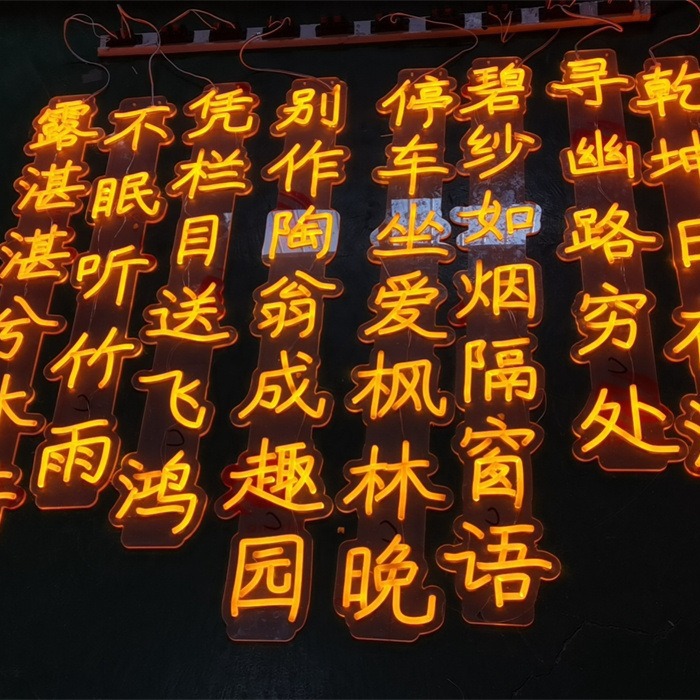 乾坤日
寻幽路穷处
碧纱如烟隔窗语
停车坐爱枫林晚
别作陶翁成趣园
凭栏目送飞鸿
不眠听竹雨
露湛湛兮